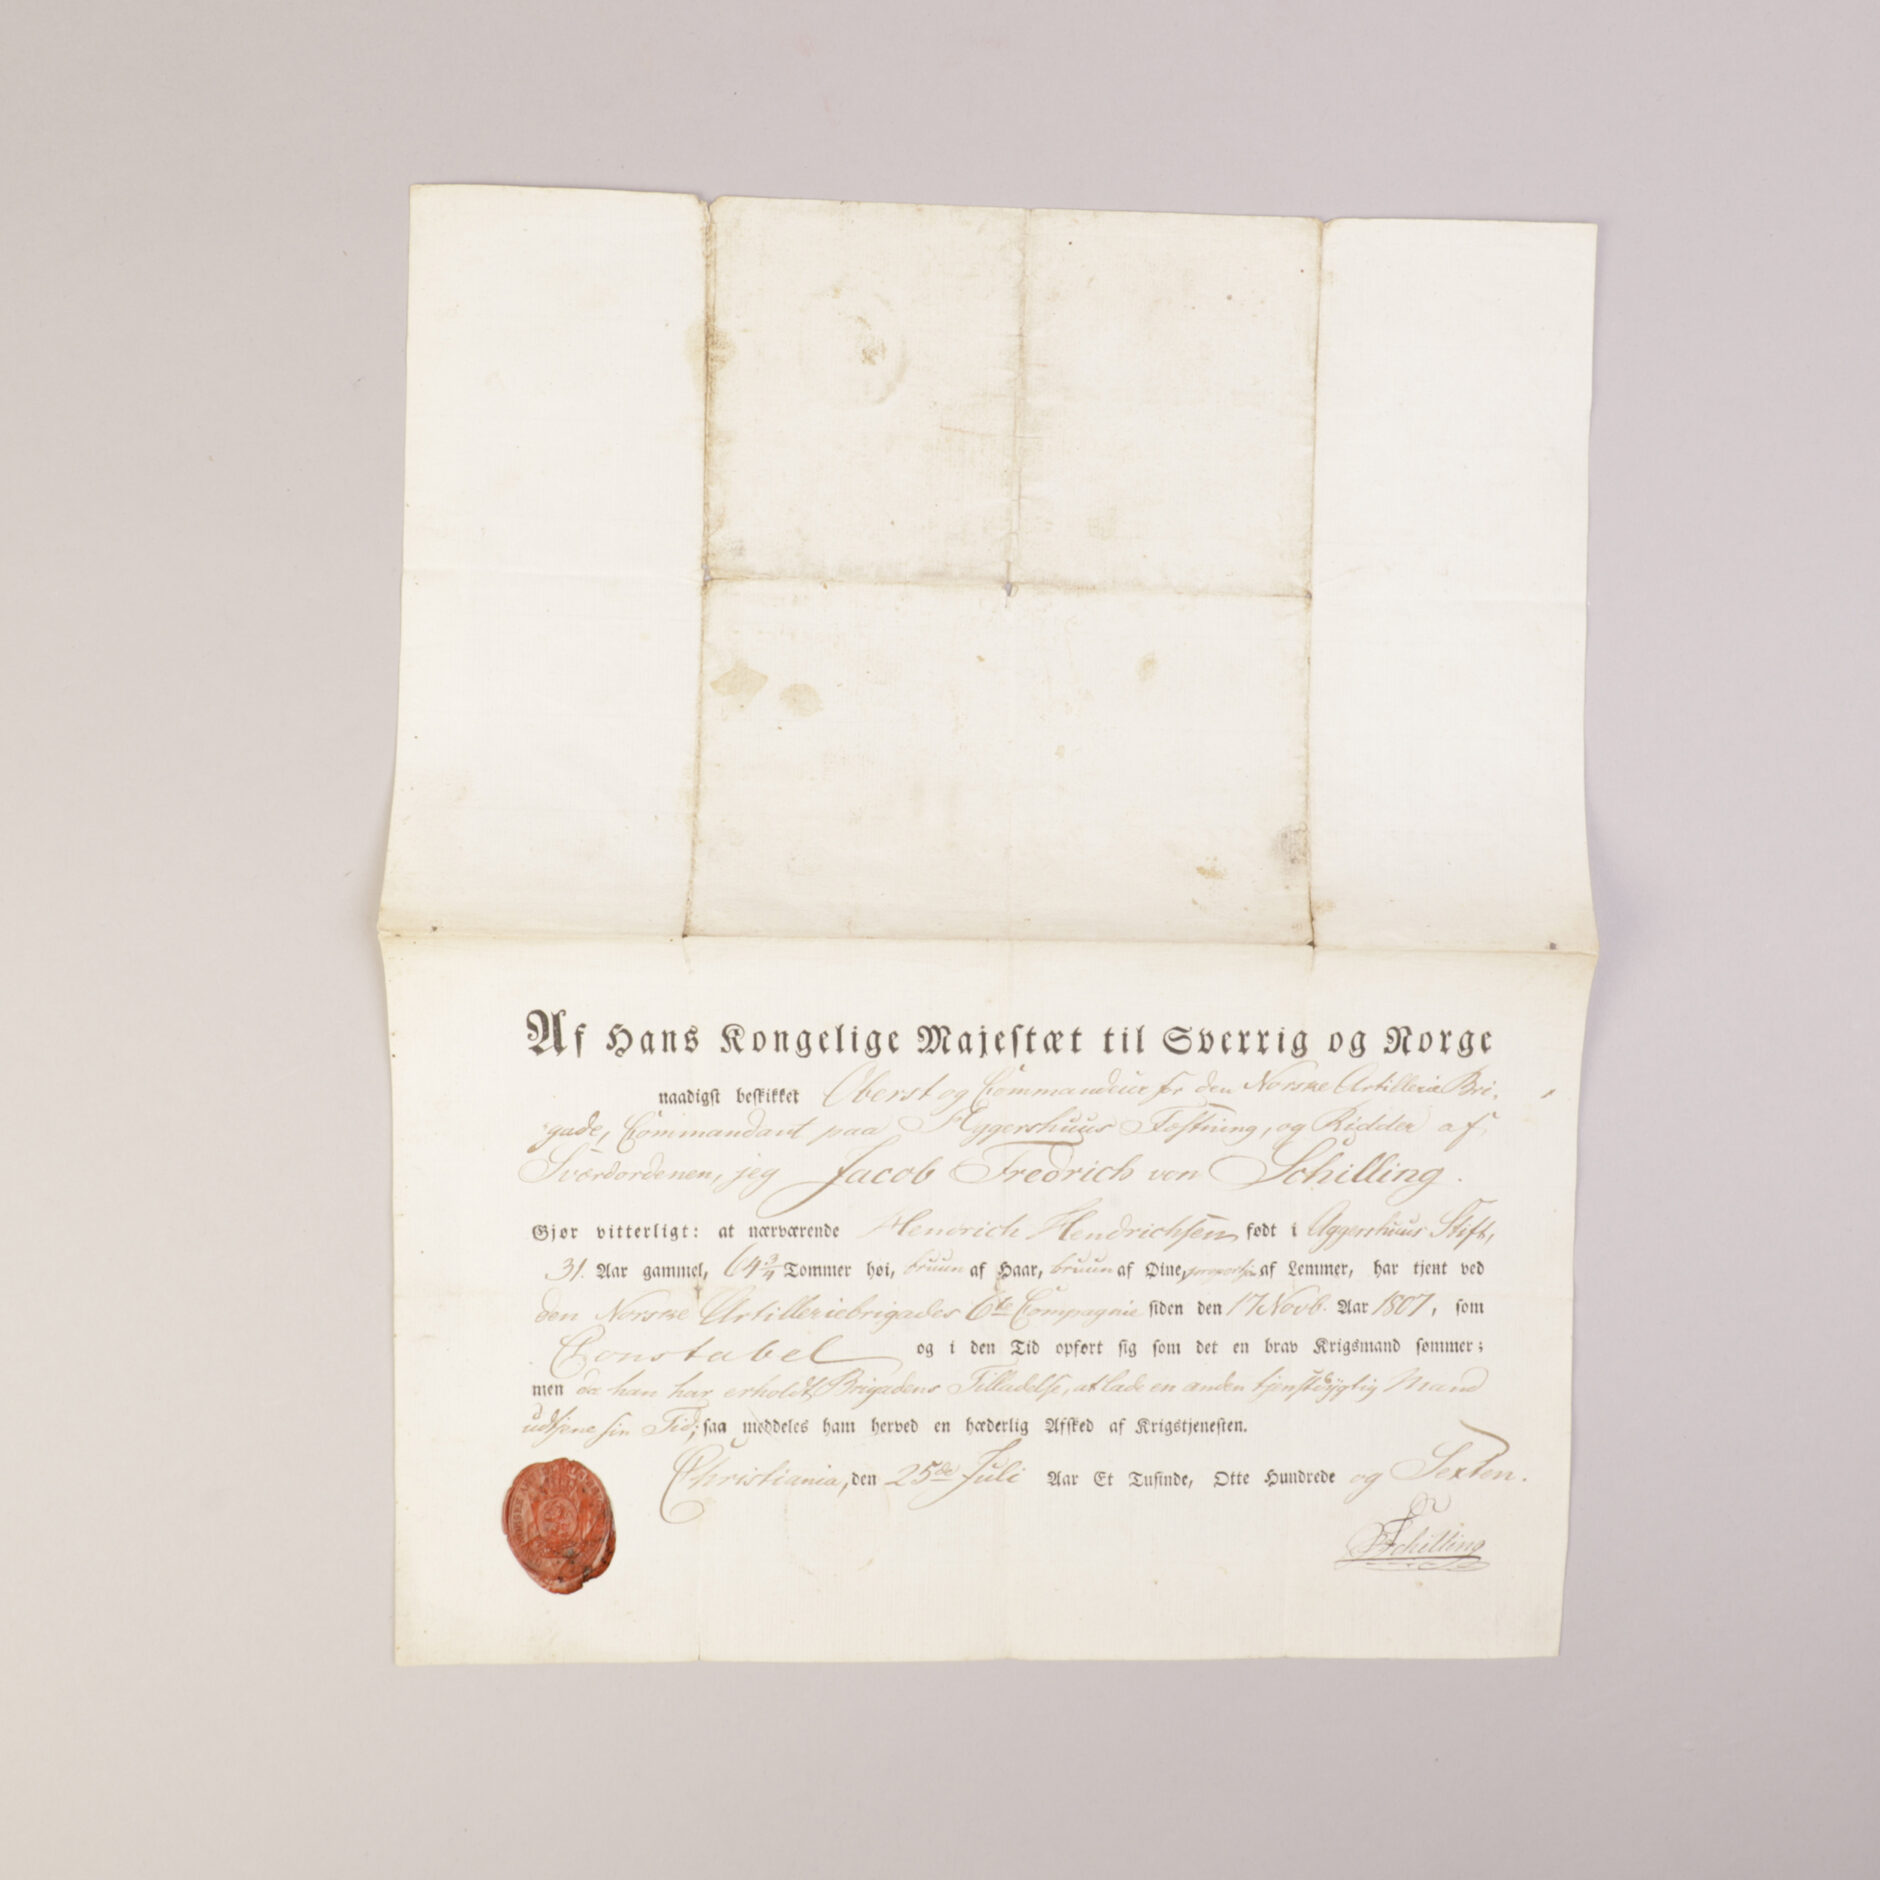 Af Hans Kongelige Majestæt til Sverrig og Norge
naadigst beskikket Oberst og Commandeur for den Norske Artillerie Bri-
gade, Commandant paa Aggershuus Fæstning, og Ridder af
Sværdordenen, jeg Jacob Fredrich von Schilling.
Gjør vitterligt: at nærværende Hendrich Hendrichsen født i Aggershuus Stift,
31 Aar gammel, 64 3/4 Tommer høi, bruun af Haar, bruun af Øine, af Lemmer, har tjent ved
den Norske Artilleriebrigades 6te Compagnie siden den 17 Novb. Aar 1807, som
Constabel og i den Tid opført sig som det en brav Krigsmand sømmer;
men da han har erholdt Brigadens Tilladelse, at lade en anden tjenstdygtig Mand
udtjene sin Tid; saa meddeles ham herved en hæderlig Afsked af Krigstjenesten.
Christiania, den 25de Juli Aar Et Tusinde, Otte Hundrede og Sexten.
Schilling